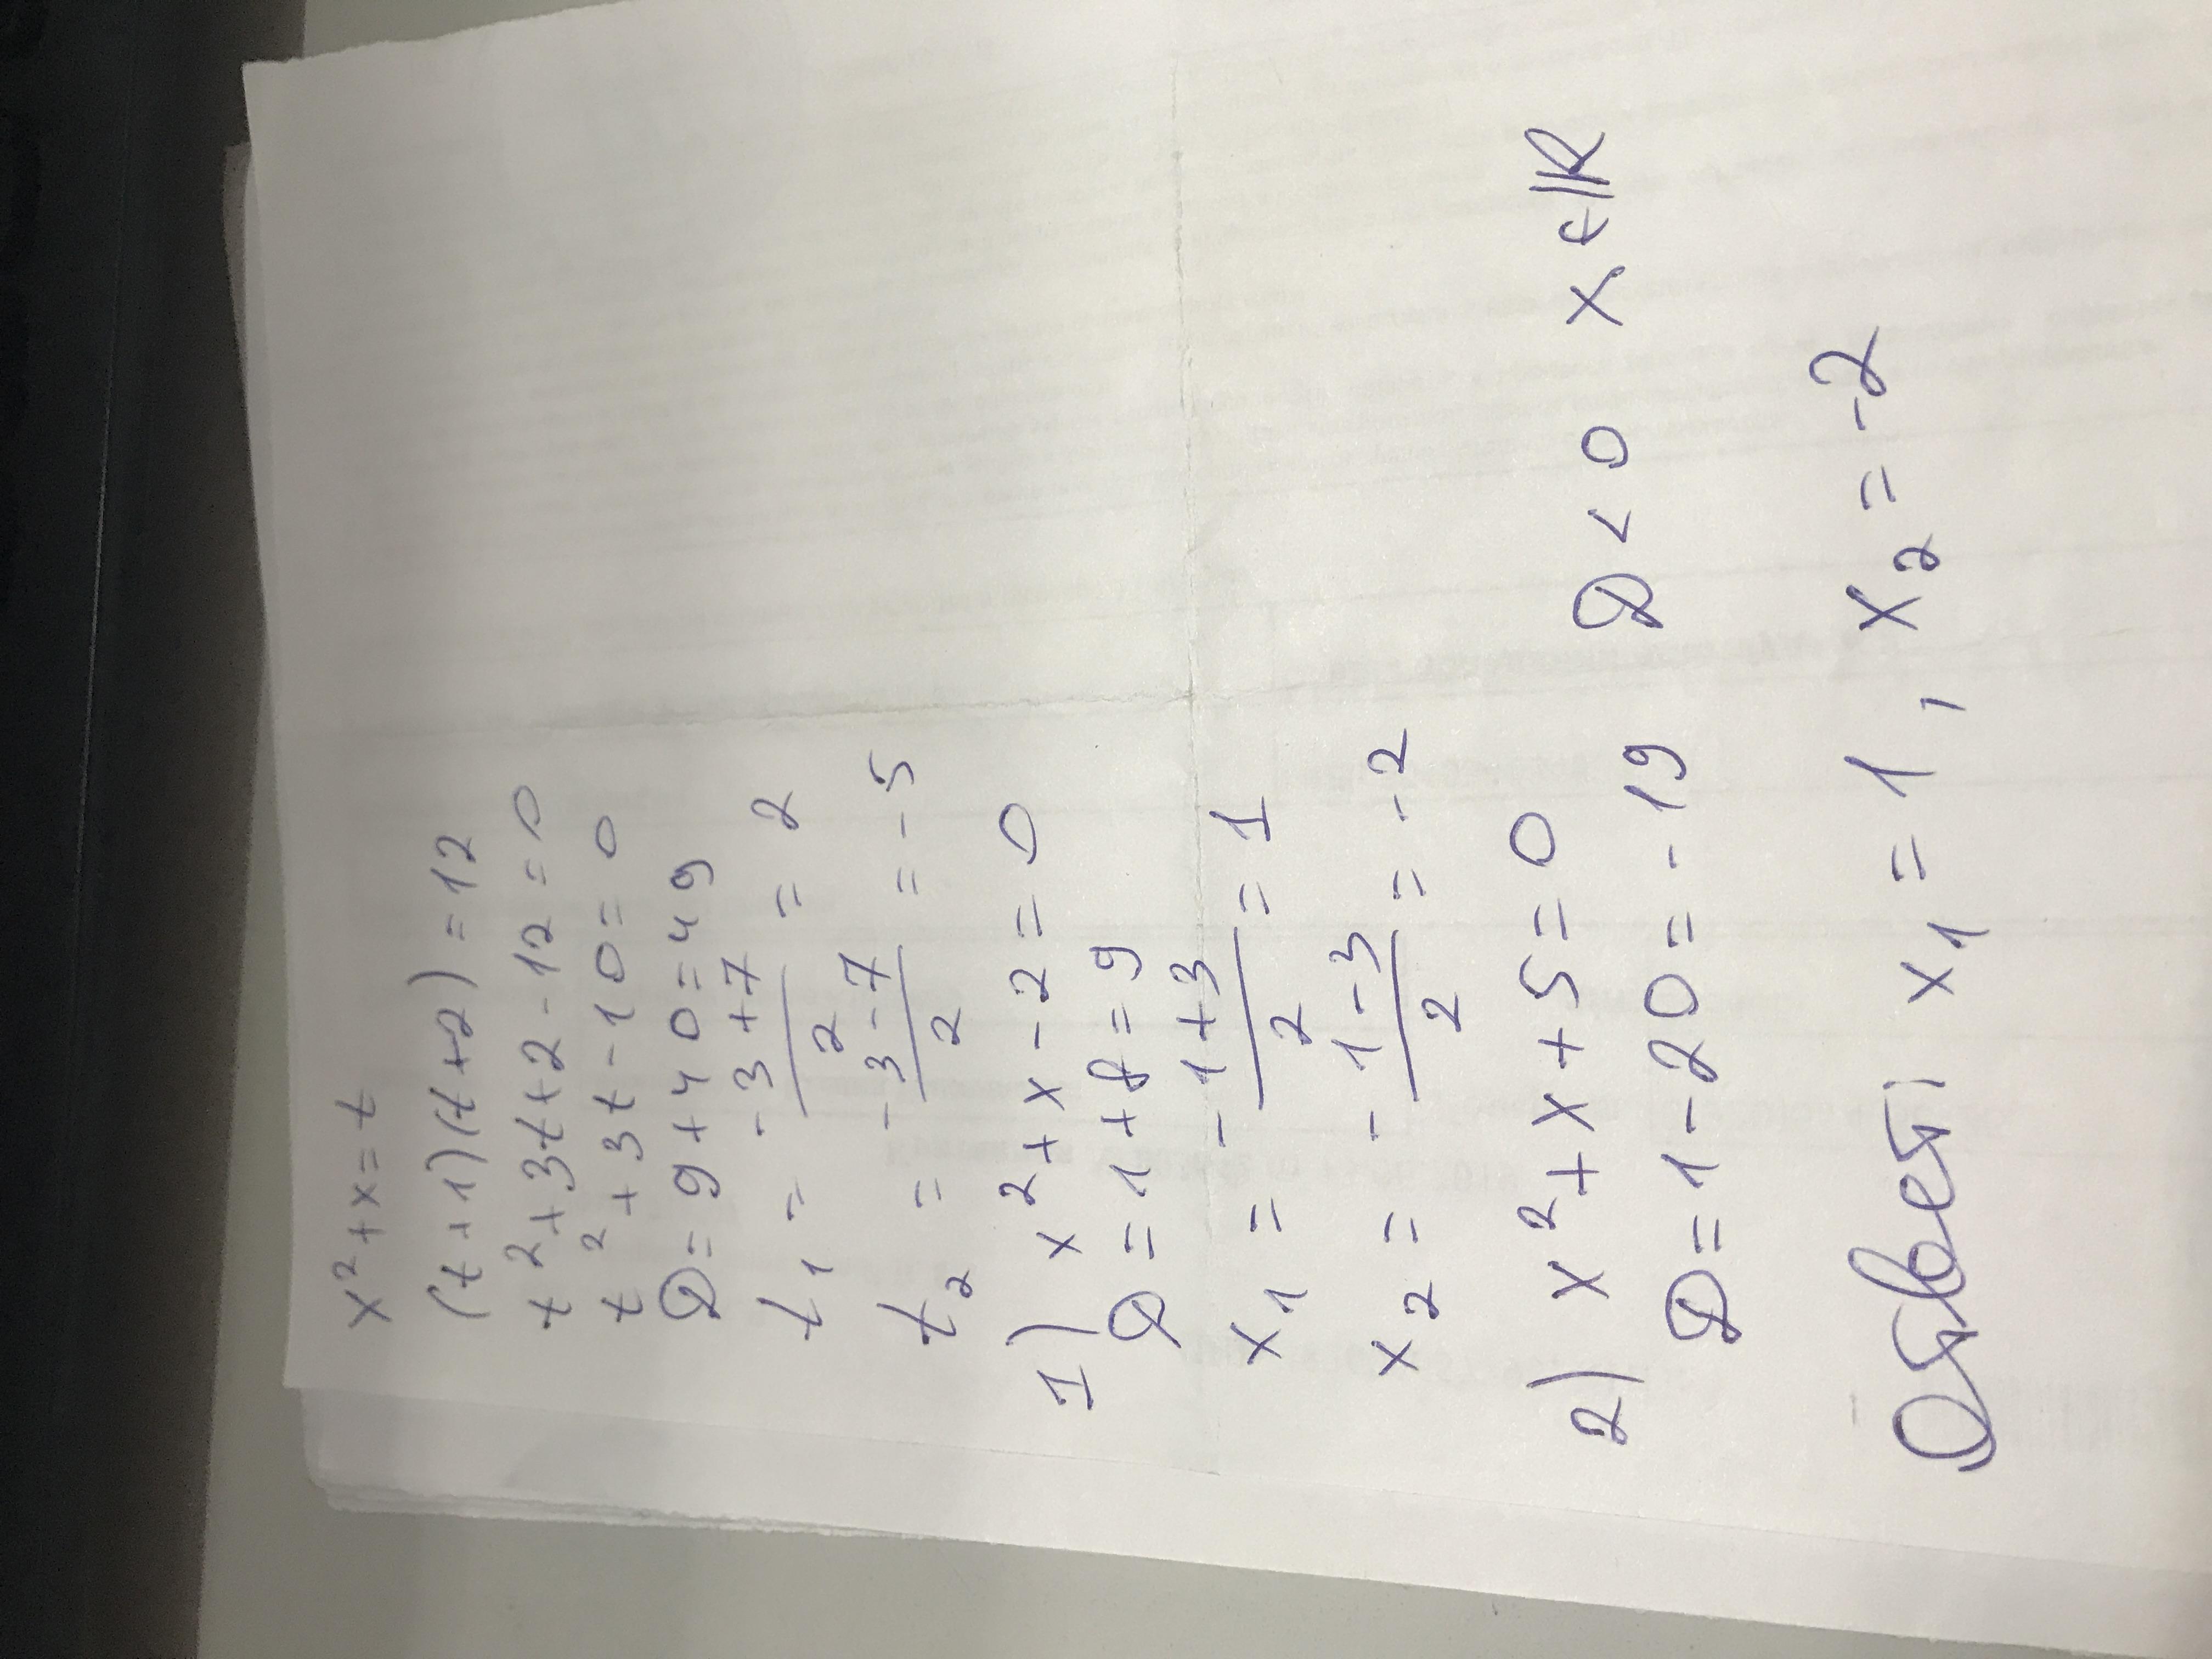 x² + x = t
(t+1)(t+2) = 12
t² + 3t + 2 - 12 = 0
t² + 3t - 10 = 0
D = 9 + 40 = 49
t₁ = (-3+7)/2 = 2
t₂ = (-3-7)/2 = -5
1) x² + x - 2 = 0
D = 1 + 8 = 9
x₁ = (-1+3)/2 = 1
x₂ = (-1-3)/2 = -2
2) x² + x + 5 = 0
D = 1 - 20 = -19 D < 0 x ∈ ℝ
Ответ: x₁ = 1, x₂ = -2